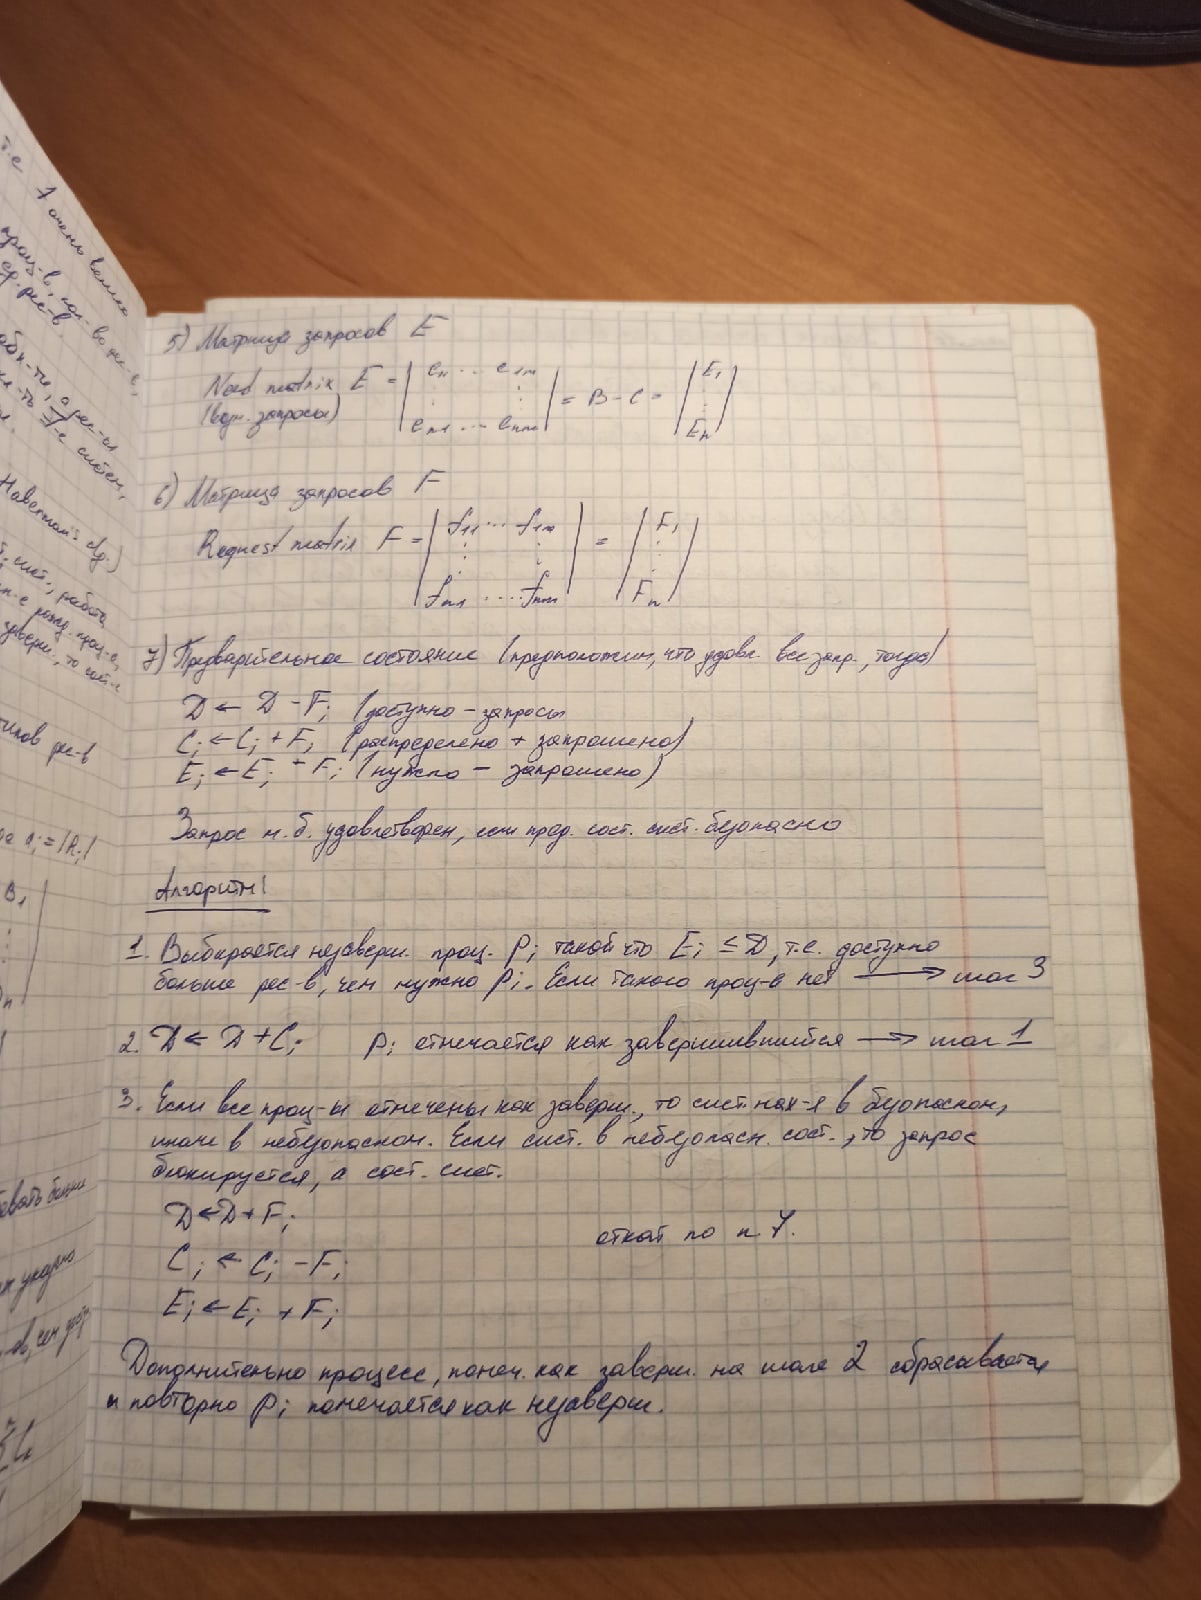 т.е
1 очень велико
проц-в, кол-во рес-в,
Haberman's alg.)
сист., работа
рес-в
B₁
5) Матрица запросов E
Need matrix E = | e₁₁ ... e₁m ⋮ ⋮ en1 ... enm | = B - C = | E₁ ⋮ En |
(возм. запросы)
6) Матрица запросов F
Request matrix F = | f₁₁ ... f₁m ⋮ ⋮ fn1 .... fnm | = | F₁ ⋮ Fn |
7) Предварительное состояние (предположим, что удовл. все запр., тогда)
D ← D - Fi (доступно - запросы
Ci ← Ci + Fi (распределено + запрошено)
Ei ← Ei - Fi (нужно - запрошено)
Запрос м.б. удовлетворен, если пред. сост. сист. безопасно
Алгоритм!
1. Выбирается незаверш. проц. Pi такой что Ei ≤ D, т.е. доступно
больше рес-в, чем нужно Pi. Если такого проц-а нет ⟶ шаг 3
2. D ← D + Ci Pi отмечается как завершившийся ⟶ шаг 1
3. Если все проц-ы отмечены как заверш., то сист. нах-я в безопасном,
иначе в небезопасном. Если сист. в небезопасн. сост., то запрос
блокируется, а сост. сист.
D ← D + Fi
откат по п 7.
Ci ← Ci - Fi
Ei ← Ei + Fi
Дополнительно процесс, помеч. как заверш. на шаге 2 сбрасывается
и повторно Pi помечается как незаверш.